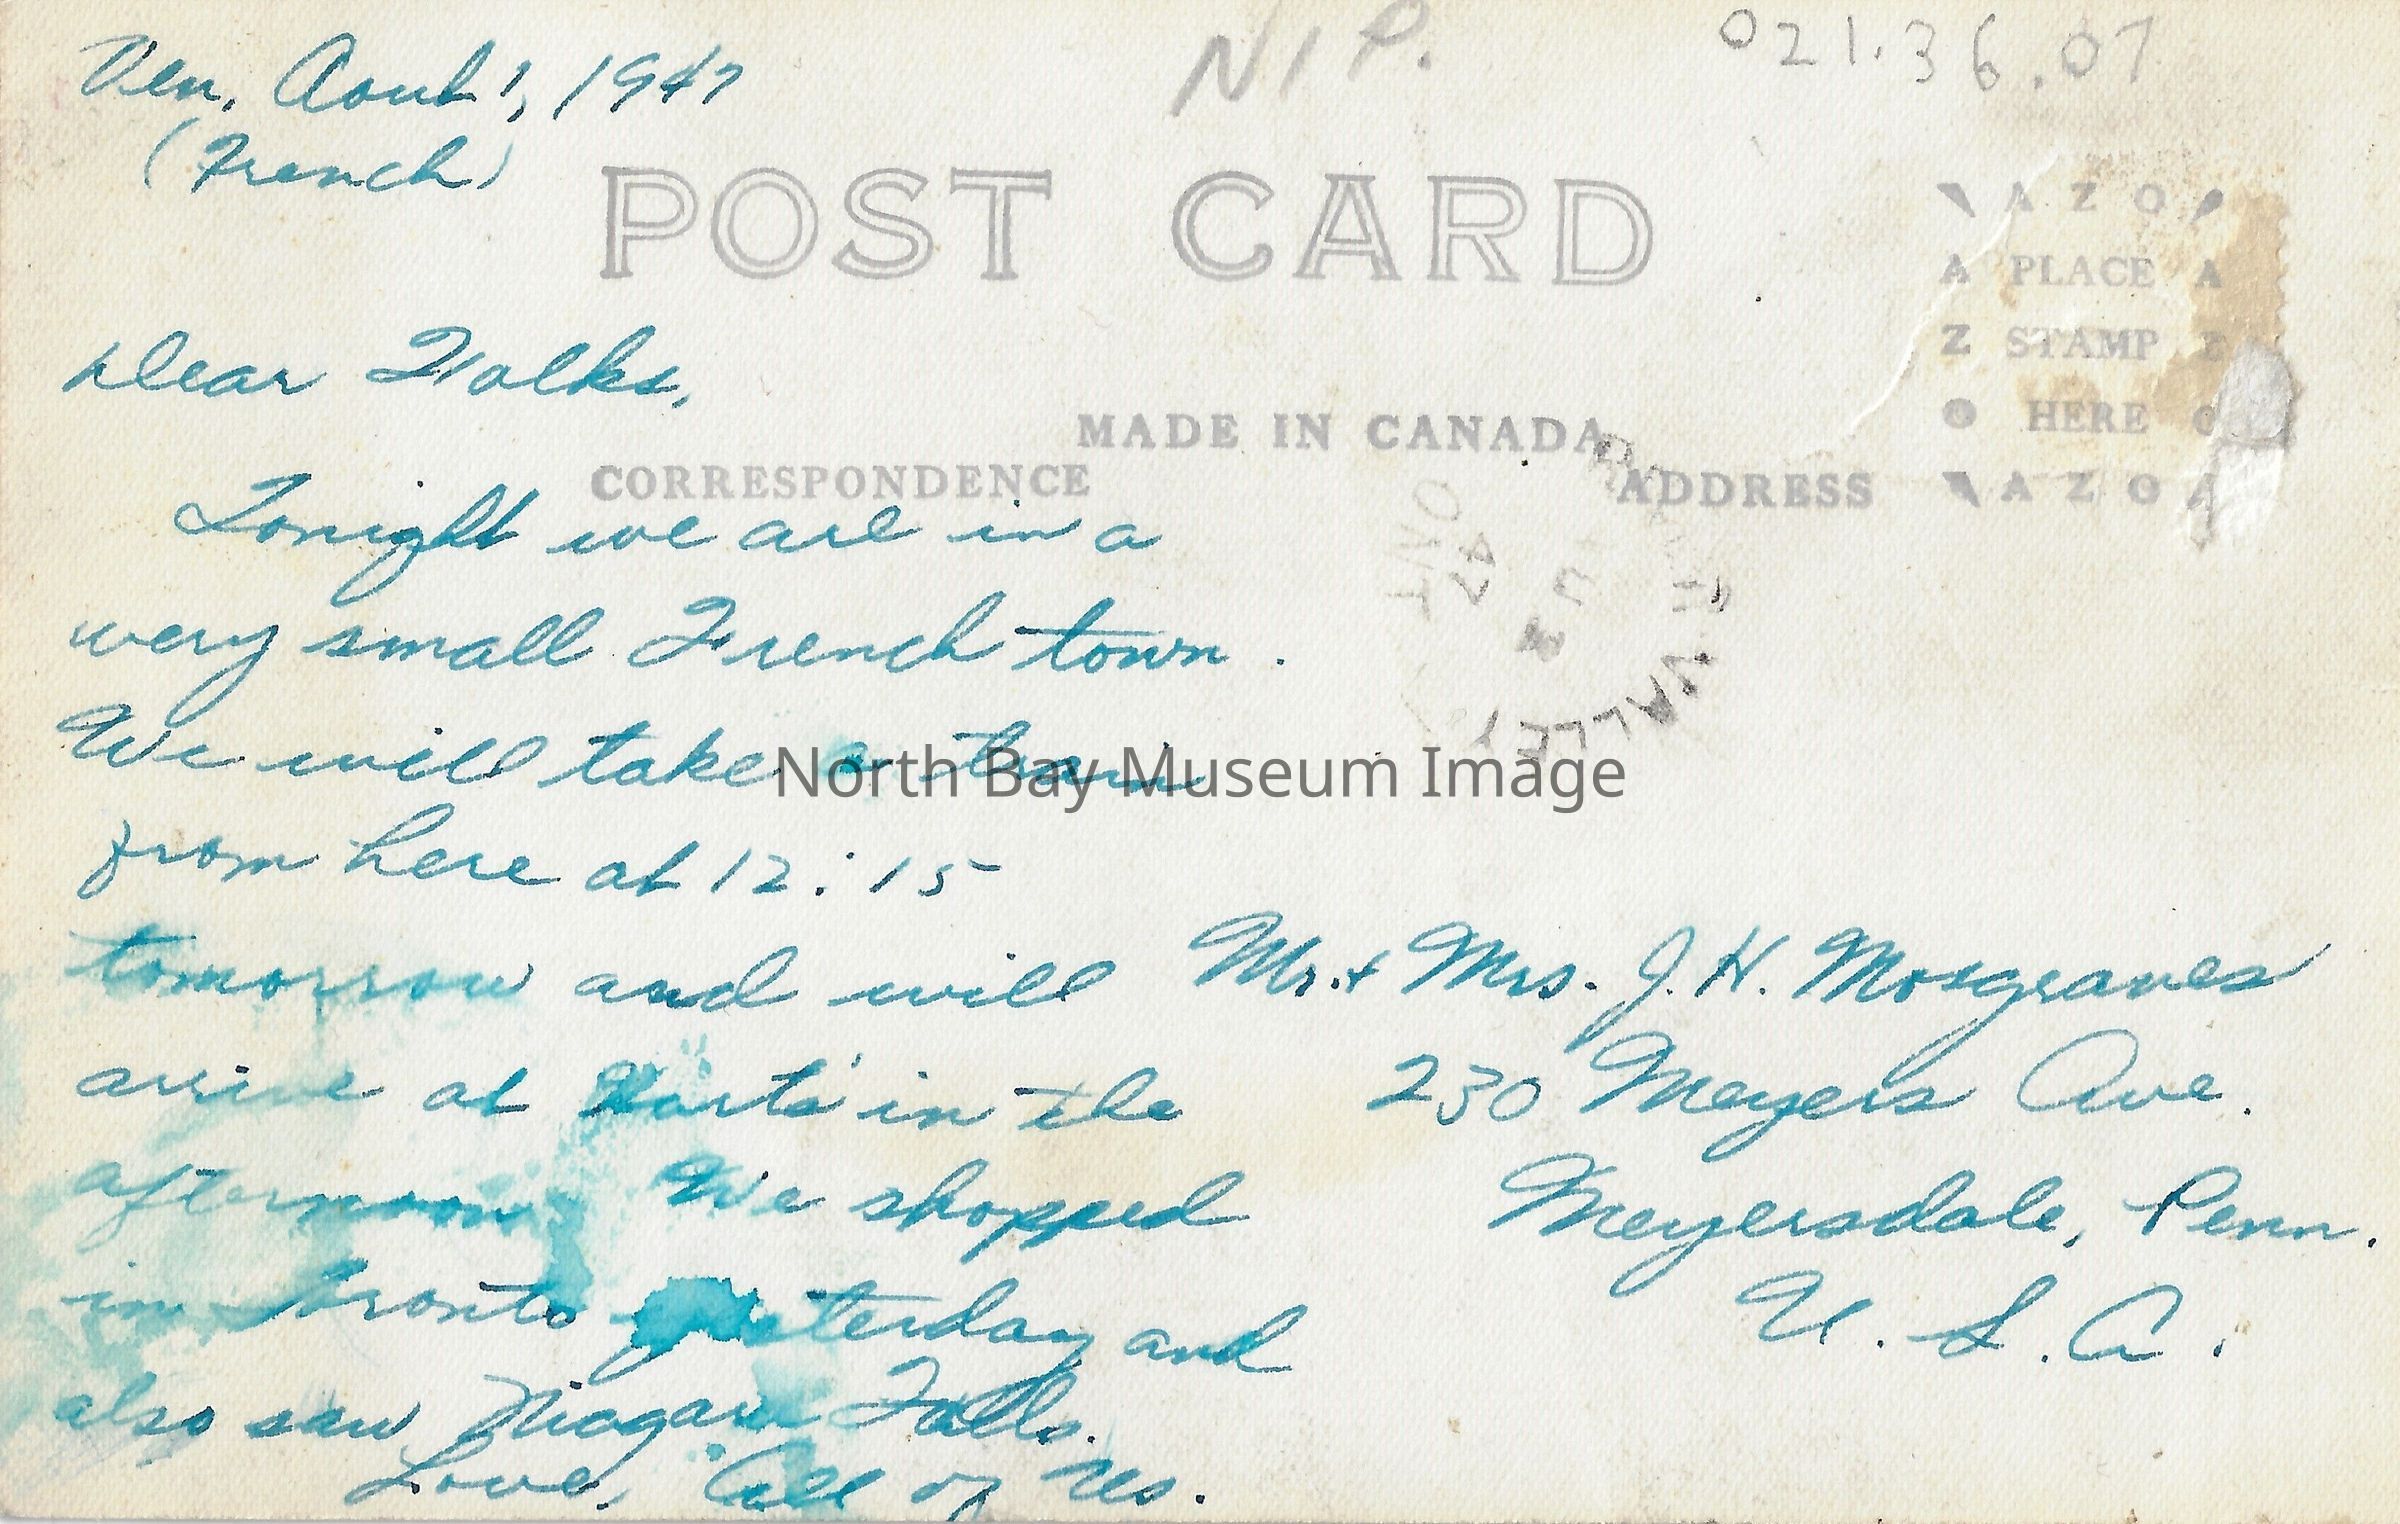 Ven. Aout 1, 1947
(French)
NIP.
021.36.07
POST CARD
AZO
A PLACE A
Z STAMP Z
O HERE O
AZO
MADE IN CANADA
CORRESPONDENCE
ADDRESS
ONT
47
VALLEY
Dear Folks,
Tonight we are in a
very small French town.
We will take a train
from here at 12:15
tomorrow and will
arrive at Hart's in the
afternoon. We shopped
in Toronto yesterday and
also saw Niagara Falls.
Love, All of Us.
Mr. & Mrs. J. H. Mosgraves
230 Meyers Ave.
Meyersdale, Penn.
U. S. A.
North Bay Museum Image